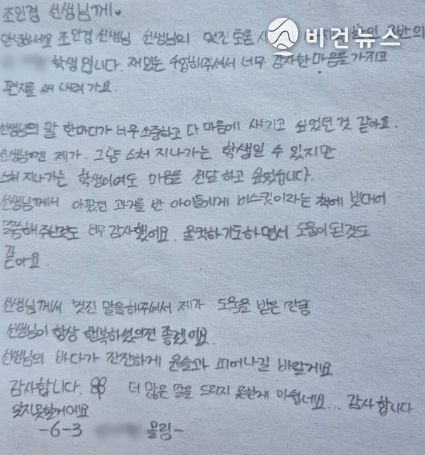 조인경 선생님께
비건뉴스
안녕하세요 조인경 선생님 선생님의 멋진 도움 3반의
학생입니다. 재밌는 수업해주셔서 너무 감사한 마음을 가지고
편지를 써 내려 가요.
선생님의 말 한마디가 너무 소중하고 다 마음에 새기고 싶었던 것 같아요.
선생님껜 제가 그냥 스쳐 지나가는 학생일 수 있지만
스쳐 지나가는 학생이여도 마음을 전달하고 싶었습니다.
선생님께서 아팠던 과거를 반 아이들에게 비스킷이라는 책에 빗대어
말씀해주신것도 너무 감사했어요. 울컥하기도하면서 도움이 된것도
같
아요
선생님께서 멋진 말을해주셔서 제가 도움을 받은 만큼
선생님이 항상 행복하셨으면 좋겠어요.
선생님의 바다가 잔잔하게 윤슬과 피어나길 바랄게요
감사합니다. 더 많은 말을 드리지 못한게 아쉽네요... 감사합니다
잊지못할거에요
-6-3 올림-